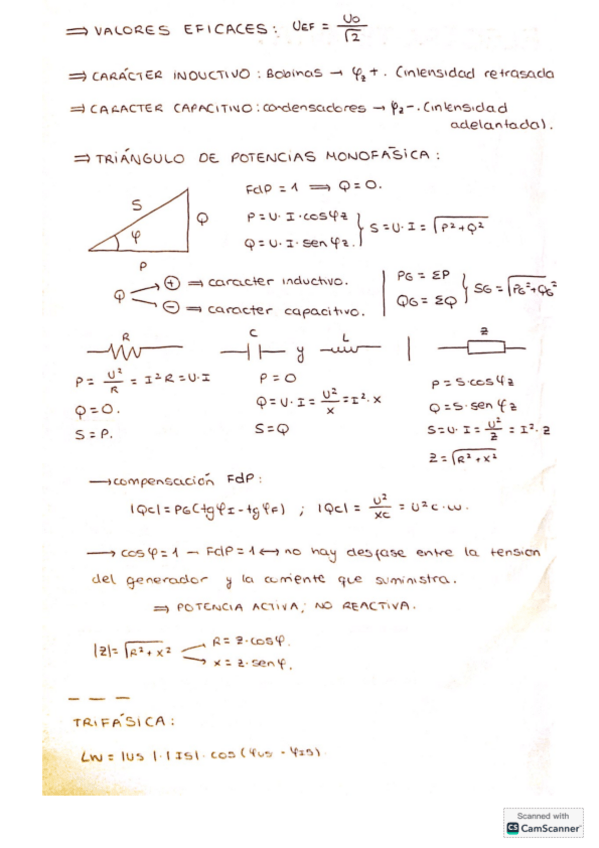 ⇒ VALORES EFICACES: UEF = U0/√2
⇒ CARÁCTER INDUCTIVO: Bobinas → φz +. (intensidad retrasada
⇒ CARACTER CAPACITIVO: condensadores → φz -. (intensidad
adelantada).
⇒ TRIÁNGULO DE POTENCIAS MONOFÁSICA:
FdP = 1 ⟹ Q = 0.
S
P = U · I · cos φz
Q
φ
S = U · I = √P²+Q²
Q = U · I · sen φz.
P
Q
+ ⇒ caracter inductivo.
- ⇒ caracter capacitivo.
PG = ΣP
QG = ΣQ
SG = √PG²+QG²
R
C
y
L
Z
P = U²/R = I²R = U·I
Q = 0.
S = P.
P = 0
Q = U · I = U²/X = I² · X
S = Q
P = S · cos φz
Q = S · sen φz
S = U · I = U²/Z = I² · Z
Z = √R² + X²
→ compensación FdP:
|QC| = PG (tg φI - tg φF) ; |QC| = U²/XC = U² C · W.
→ cos φ = 1 - FdP = 1 ↔ no hay desfase entre la tension
del generador y la corriente que suministra.
⇒ POTENCIA ACTIVA; NO REACTIVA.
|Z| = √R² + X²
R = Z · cos φ.
X = Z · sen φ.
- - -
TRIFÁSICA:
LW = |US| · |IS| · cos (φUS - φIS).
Scanned with
CS CamScanner